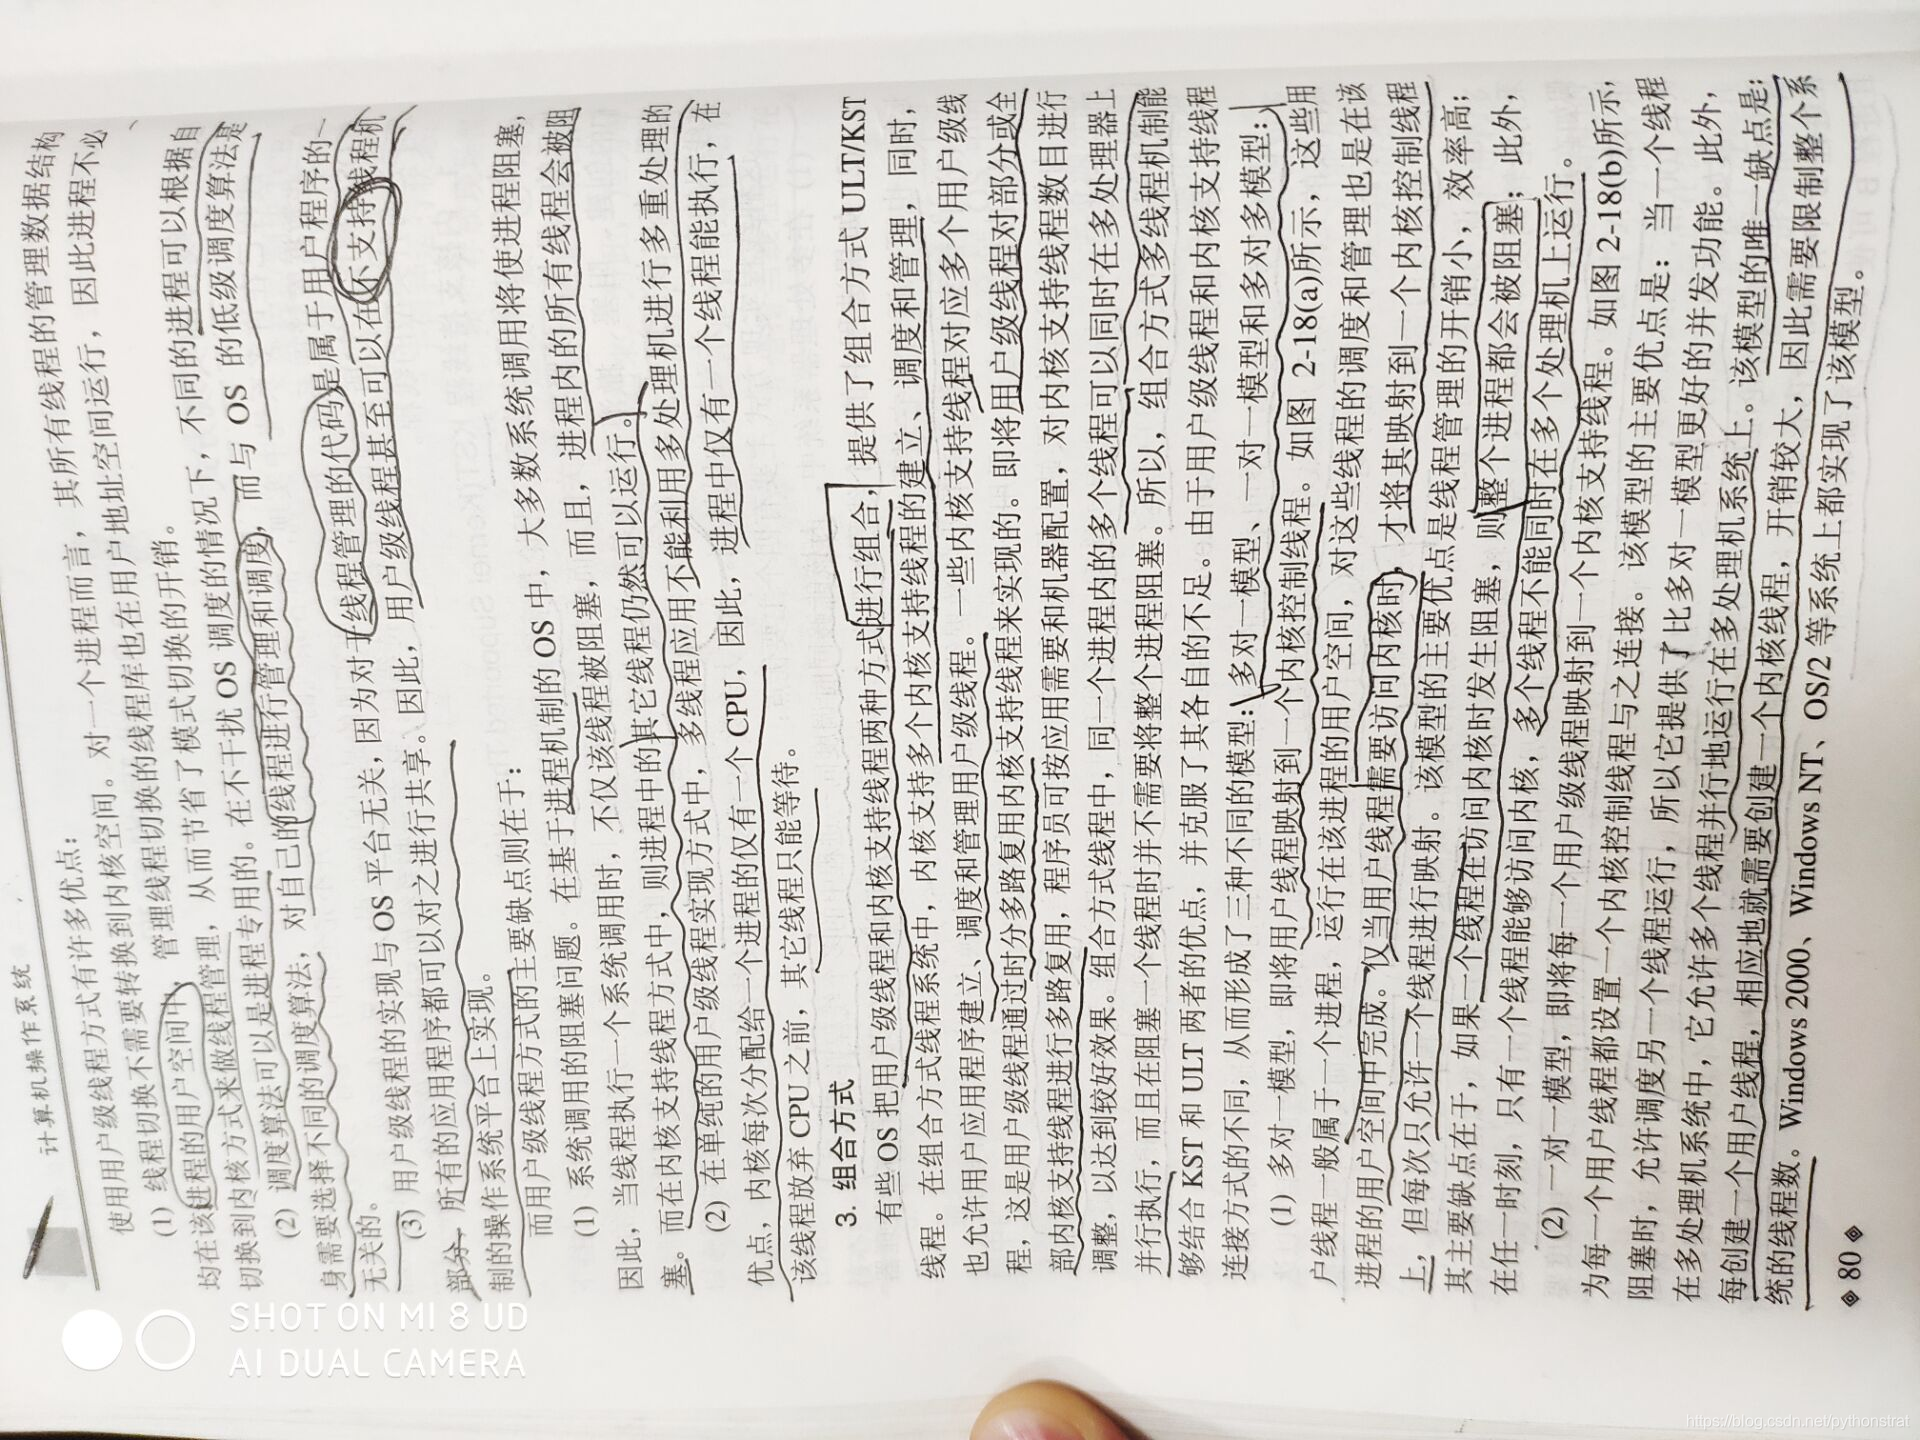 计算机操作系统
使用用户级线程方式有许多优点：
(1) 线程切换不需要转换到内核空间。对一个进程而言，其所有线程的管理数据结构
均在该进程的用户空间中，管理线程切换的线程库也在用户地址空间运行，因此进程不必
切换到内核方式来做线程管理，从而节省了模式切换的开销。
(2) 调度算法可以是进程专用的。在不干扰 OS 调度的情况下，不同的进程可以根据自
身需要选择不同的调度算法，对自己的线程进行管理和调度，而与 OS 的低级调度算法是
无关的。
(3) 用户级线程的实现与 OS 平台无关，因为对于线程管理的代码是属于用户程序的一
部分，所有的应用程序都可以对之进行共享。因此，用户级线程甚至可以在不支持线程机
制的操作系统平台上实现。
而用户级线程方式的主要缺点则在于：
(1) 系统调用的阻塞问题。在基于进程机制的 OS 中，大多数系统调用将使进程阻塞，
因此，当线程执行一个系统调用时，不仅该线程被阻塞，而且，进程内的所有线程会被阻
塞。而在内核支持线程方式中，则进程中的其它线程仍然可以运行。
(2) 在单纯的用户级线程实现方式中，多线程应用不能利用多处理机进行多重处理的
优点，内核每次分配给一个进程的仅有一个 CPU，因此，进程中仅有一个线程能执行，在
该线程放弃 CPU 之前，其它线程只能等待。
3. 组合方式
有些 OS 把用户级线程和内核支持线程两种方式进行组合，提供了组合方式 ULT/KST
线程。在组合方式线程系统中，内核支持多个内核支持线程的建立、调度和管理，同时，
也允许用户应用程序建立、调度和管理用户级线程。一些内核支持线程对应多个用户级线
程，这是用户级线程通过时分多路复用内核支持线程来实现的。即将用户级线程对部分或全
部内核支持线程进行多路复用，程序员可按应用需要和机器配置，对内核支持线程数目进行
调整，以达到较好效果。组合方式线程中，同一个进程内的多个线程可以同时在多处理器上
并行执行，而且在阻塞一个线程时并不需要将整个进程阻塞。所以，组合方式多线程机制能
够结合 KST 和 ULT 两者的优点，并克服了其各自的不足。由于用户级线程和内核支持线程
连接方式的不同，从而形成了三种不同的模型：多对一模型、一对一模型和多对多模型：
(1) 多对一模型，即将用户线程映射到一个内核控制线程。如图 2-18(a)所示，这些用
户线程一般属于一个进程，运行在该进程的用户空间，对这些线程的调度和管理也是在该
进程的用户空间中完成。仅当用户线程需要访问内核时，才将其映射到一个内核控制线程
上，但每次只允许一个线程进行映射。该模型的主要优点是线程管理的开销小，效率高；
其主要缺点在于，如果一个线程在访问内核时发生阻塞，则整个进程都会被阻塞；此外，
在任一时刻，只有一个线程能够访问内核，多个线程不能同时在多个处理机上运行。
(2) 一对一模型，即将每一个用户级线程映射到一个内核支持线程。如图 2-18(b)所示，
为每一个用户线程都设置一个内核控制线程与之连接。该模型的主要优点是：当一个线程
阻塞时，允许调度另一个线程运行，所以它提供了比多对一模型更好的并发功能。此外，
在多处理机系统中，它允许多个线程并行地运行在多处理机系统上。该模型的唯一缺点是：
每创建一个用户线程，相应地就需要创建一个内核线程，开销较大，因此需要限制整个系
统的线程数。Windows 2000、Windows NT、OS/2 等系统上都实现了该模型。
80
SHOT ON MI 8 UD
AI DUAL CAMERA
https://blog.csdn.net/pythonstrat